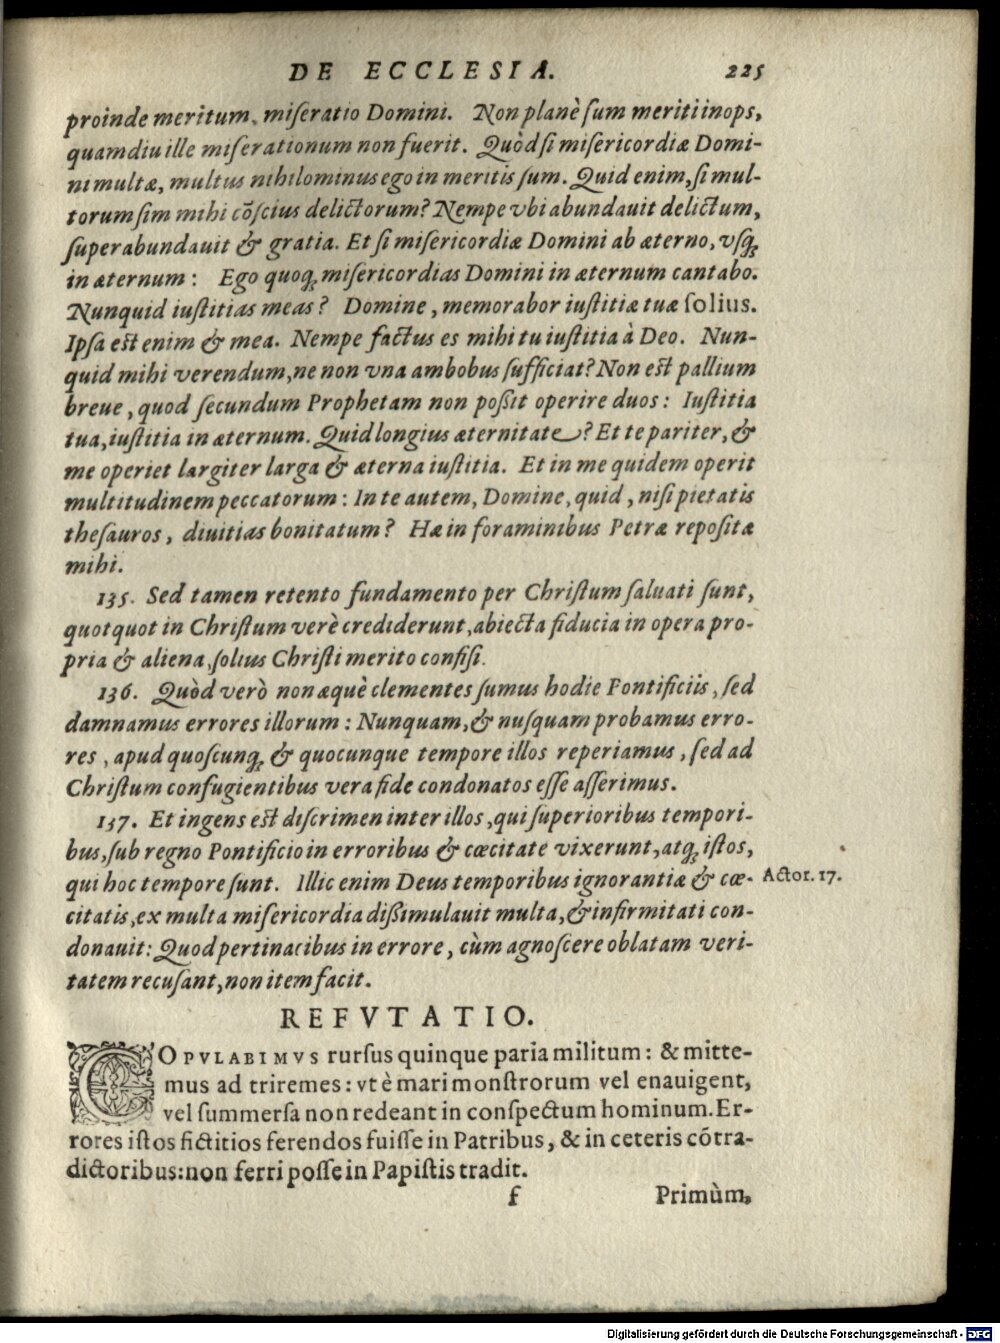 DE ECCLESIA. 225
proinde meritum, miſeratio Domini. Non planè ſum meriti inops,
quamdiu ille miſerationum non fuerit. Quòd ſi miſericordiæ Domi-
ni multæ, multus nihilominus ego in meritis ſum. Quid enim, ſi mul-
torum ſim mihi cõſcius delictorum? Nempe vbi abundauit delictum,
ſuperabundauit & gratia. Et ſi miſericordiæ Domini ab æterno, vſq;
in æternum: Ego quoq; miſericordias Domini in æternum cantabo.
Nunquid iuſtitias meas? Domine, memorabor iuſtitiæ tuæ ſolius.
Ipſa eſt enim & mea. Nempe factus es mihi tu iuſtitia à Deo. Nun-
quid mihi verendum, ne non vna ambobus ſufficiat? Non eſt pallium
breue, quod ſecundum Prophetam non poßit operire duos: Iuſtitia
tua, iuſtitia in æternum. Quid longius æternitate? Et te pariter, &
me operiet largiter larga & æterna iuſtitia. Et in me quidem operit
multitudinem peccatorum: In te autem, Domine, quid, niſi pietatis
theſauros, diuitias bonitatum? Hæ in foraminibus Petræ repoſitæ
mihi.
135. Sed tamen retento fundamento per Chriſtum ſaluati ſunt,
quotquot in Chriſtum verè crediderunt, abiecta fiducia in opera pro-
pria & aliena, ſolius Chriſti merito confiſi.
136. Quòd verò non æquè clementes ſumus hodie Pontificiis, ſed
damnamus errores illorum: Nunquam, & nuſquam probamus erro-
res, apud quoſcunq; & quocunque tempore illos reperiamus, ſed ad
Chriſtum confugientibus vera fide condonatos eſſe aſſerimus.
137. Et ingens eſt diſcrimen inter illos, qui ſuperioribus tempori-
bus, ſub regno Pontificio in erroribus & cœcitate vixerunt, atq; iſtos,
qui hoc tempore ſunt. Illic enim Deus temporibus ignorantiæ & cœ- Actor. 17.
citatis, ex multa miſericordia dißimulauit multa, & infirmitati con-
donauit: Quod pertinacibus in errore, cùm agnoſcere oblatam veri-
tatem recuſant, non item facit.
REFVTATIO.
COPVLABIMVS rurſus quinque paria militum: & mitte-
mus ad triremes: vt è mari monſtrorum vel enauigent,
vel ſummerſa non redeant in conſpectum hominum. Er-
rores iſtos fictitios ferendos fuiſſe in Patribus, & in ceteris cõtra-
dictoribus: non ferri poſſe in Papiſtis tradit.
f Primùm,
Digitalisierung gefördert durch die Deutsche Forschungsgemeinschaft - DFG